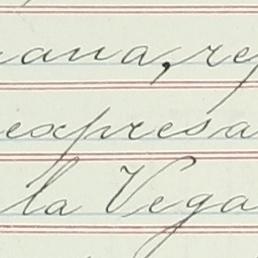 ana, re
expresa
la Vega